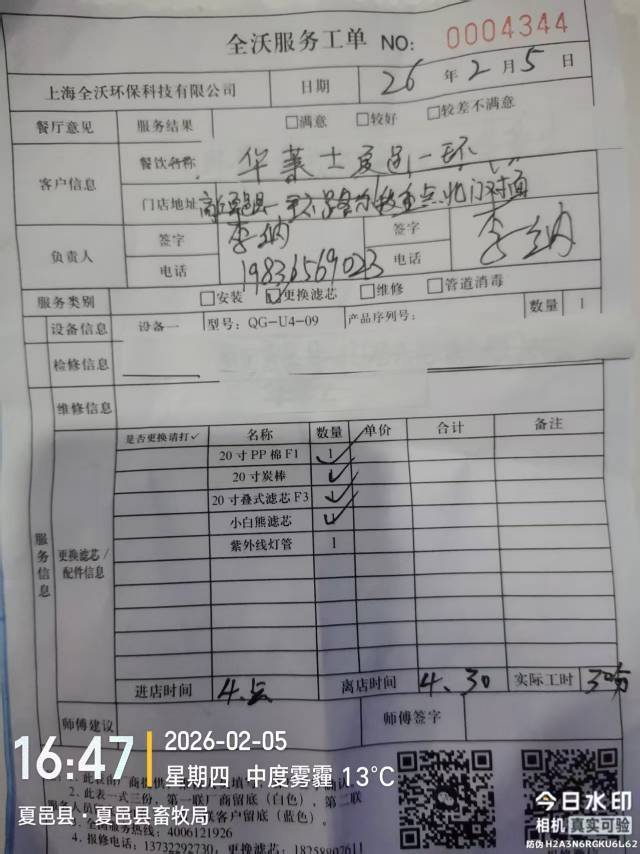 全沃服务工单 NO: 0004344
上海全沃环保科技有限公司 日期 26 年 2 月 5 日
餐厅意见 服务结果 □满意 □较好 □较差不满意
客户信息 餐饮名称 华莱士夏邑一环
门店地址 对面
负责人 签字 李纳 签字 李纳
电话 19836569023 电话
服务类别 □安装 ☑更换滤芯 □维修 □管道消毒
设备信息 设备一 型号: QG-U4-09 产品序列号: 数量 1
检修信息
维修信息
服务信息 更换滤芯/配件信息
是否更换请打✓ 名称 数量 单价 合计 备注
20寸PP棉F1 1 ✓
20寸炭棒 ✓
20寸叠式滤芯F3 ✓
小白熊滤芯 ✓
紫外线灯管 1
进店时间 4.点 离店时间 4.30 实际工时
师傅建议 师傅签字
16:47 2026-02-05
星期四 中度雾霾 13°C
夏邑县·夏邑县畜牧局
2. 此表一式三份，第一联厂商留底（白色）、第二联
客户留底（蓝色）.
服务热线: 4006121926
4. 报修电话: 13732292730, 更换滤芯:
今日水印
相机 真实可验
防伪 H2A3N6RGKU6L62